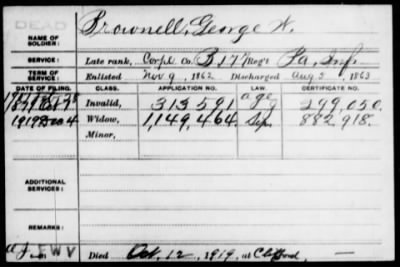 DEAD
NAME OF SOLDIER: Brownell, George W.
SERVICE: Late rank, Corpl Co. B, 177 Reg't Pa. Inf.
TERM OF SERVICE: Enlisted Nov 9, 1862 Discharged Aug 5, 1863
DATE OF FILING. CLASS. APPLICATION NO. LAW. CERTIFICATE NO.
Invalid, 313,591 age 299,050.
1919 Dec 4 Widow, 1,149,464. Sep. 882,918.
Minor,
ADDITIONAL SERVICES:
REMARKS:
EWV
Died Oct. 12, 1919, at Clifford, —